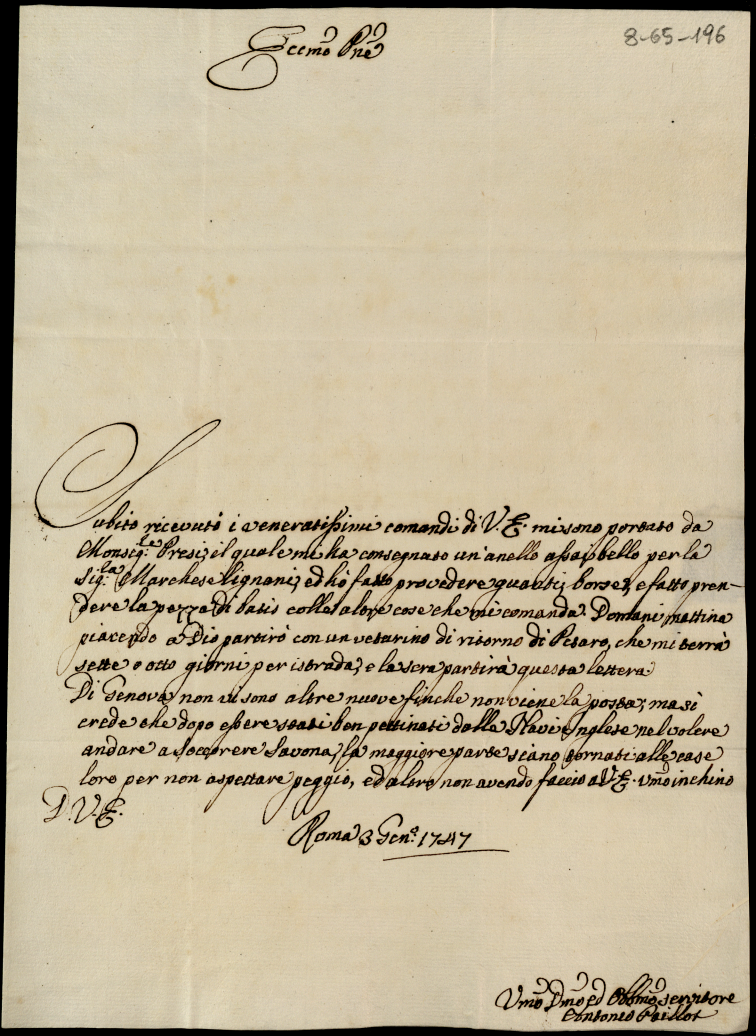 8-65-196
Eccmo Pne
Subito ricevuto i veneratissimi comandi di V.E. mi sono portato da
Monsig.re Presi; il quale mi ha consegnato un'anello assai bello per la
Sig.ra Marchese ed hò fatto provedere guanti, borse, e fatto pren-
dere la pezza di batis colle altre cose che mi comanda. Domani mattina
piacendo a Dio partirò con un veturino di ritorno di Pesaro, che mi terrà
sette o otto giorni per istrada, e la sera partirà questa lettera.
Di Genova non vi sono altre nuove finche non viene la posta; ma si
crede che dopo essere stati ben pettinati dalle Navi Inglese nel volere
andare a soccorere Savona, la maggiore parte siano tornati alle case
loro per non aspettare peggio, ed altro non avendo faccio a V.E. Vmo inchino
D. V. E.
Roma 3 Gen.o 1747
Vmo Dmo ed Obbmo servitore
Antonio Paillot